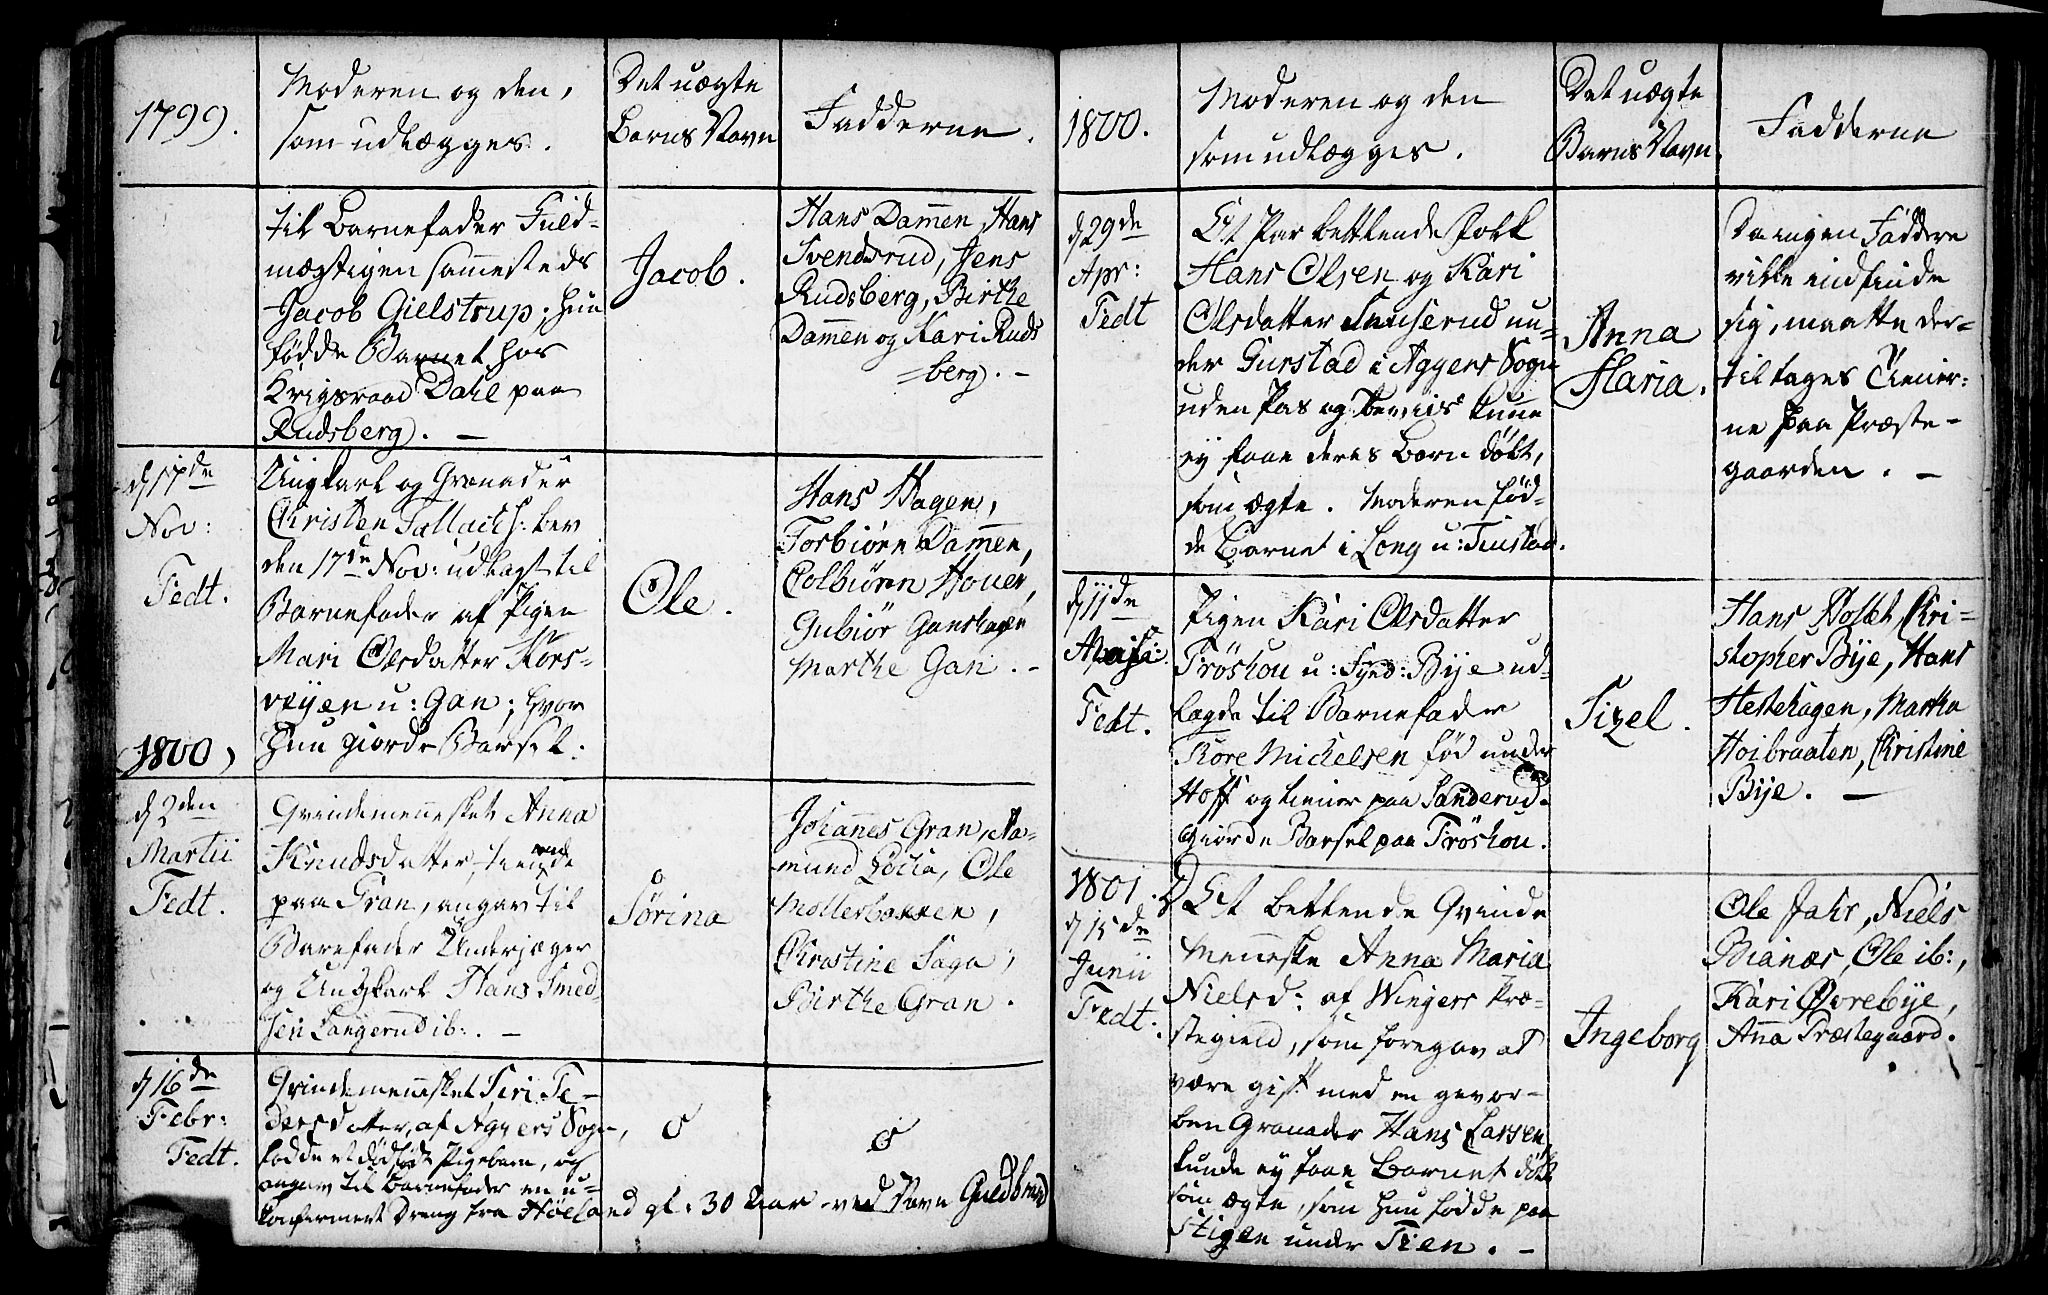 1799.
Moderen og den,
som udlægges.
Det uægte
Barns Navn
Fadderne.
til Barnefader Fuld-
mægtigen sammesteds
Jacob Gielstrup; hun
fødde Barnet hos
Krigsraad Dahl paa
Rudsberg. –
Jacob.
Hans Dam̅en, Hans
Svendsrud, Jens
Rudsberg, Birthe
Dam̅en og Kari Ruds
=berg. –
d 17de
Nov:
Fedt.
Ungkarl og Grenader
Christen Tallach: blev
den 17de Nov: udlagt til
Barnefader af Pigen
Mari Olsdatter Kors-
veyen u: Gan; hvor
hun giorde Barsel.
Ole.
Hans Hagen,
Torbiörn Dam̅en,
Colbiörn Houer,
Gubiör Ganshagen
Marthe Gan. –
1800,
d 2den
Martii
Fedt.
Qvindemennesket Anna
Knudsdatter, tienende
paa Gran, angav til
Barefader Underjæger
og Ungkarl Hans Smed-
sen Langerud ib: –
Sørina
Johannes Gran, Aa-
mund Locia, Ole
Mollerbakken,
Christine Saga,
Birthe Gran.
d 16de
Febr:
Fedt.
Qvindemennesket Siri Pe-
dersdatter, af Aggers Sogn,
fødde et dødfødt Pigebarn, og
angav til Barnefader en u-
konfermert Dreng fra Höland gl. 30 Aar ved Navn Guldbrand
0
0
1800.
Moderen og den
som udlægges.
Det uægte
Barns Navn
Fadderne
d 29de
Apr:
Fedt
Et Par betlende Folk
Hans Olsen og Kari
Olsdatter Snuserud un-
der Gurstad i Aggers Sogn
uden Pas og Beviis kunne
ey faae deres Barn døbt,
som ægte. Moderen fød-
de Barnet i Long u: Tiustad.
Anna
Maria.
Da ingen Faddere
ville indfinde
sig, maatte der-
til tages Tiener-
ne paa Præste-
gaarden. –
d 11de
Maji:
Fedt.
Pigen Kari Olsdatter
Tröshou u: Fynd: Bÿe ud-
lagde til Barnefader
Tore Michelsen fød under
Hoff og tiener paa Sanderud.
Giorde Barsel paa Tröshou.
Sizel.
Hans Nollet, Chri-
stopher Bÿe, Hans
Hestehagen, Martha
Hoibraaten, Christine
Bÿe. –
1801.
d 15de
Junii
Fedt.
Et betlende Qvinde
Menneske Anna Maria
Nielsd: af Wingers Præ-
stegield, som foregav at
være gift med en gevor-
ben Granader Hans Larsen,
kunde ey faae Barnet døbt
som ægte, som hun fødde paa
Stigen under Tien. –
Ingeborg
Ole Jahr, Niels
Bianæs, Ole ib:,
Kari Øvrebÿe,
An̅a Præstegaard.